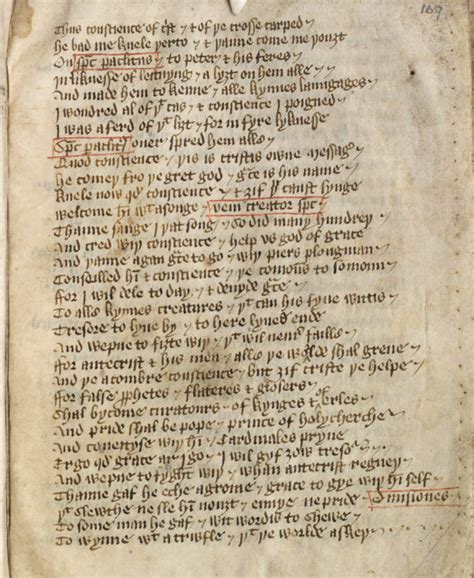 169
Thus conscience of cst & of ye crosse carped
He bad me knele yerto & yanne come me youzt
On spc paclitus to peter & his feres
In liknesse of leittnyng a lyzt on hem alle
And made hem to kenne alle kynnes langages
I wondred al of yt cas & conscience I poigned
I was aferd of yt lyzt for in fyre lyknesse
Spc paclit ouer spred hem alle
Quod conscience yis is cristis owne messag
He comey fro ye gret god gce is his name
Knele now qd conscience & zif yu canst synge
Welcome hi wt a songe veni creator spc
Thanne sange I yat song so did many hundrey
And cred wiy conscience help vs god of grace
And yanne agan gce to go wiy piers plougman
Conseilled hi & conscience ye comous to somoni
ffor I wil dele to day & deuyde gce
To alle kynnes creatures yt can his fyue wittis
Tresore to lyue by to here lyues ende
And wepne to fizte wiy yt wil neuer faille
ffor antecrist & his men alle ye world shal greue
And ye acombre conscience but zif criste ye helpe
ffor false pphetes flateres & glosers
Shal bycome curatours of kynges & of erles
And pride shal be pope prince of holy cherche
And coueityse wiy hi Cardinales
Ergo qd grace ar I go I wil gyf zow tresor
And wepne to fyght wiy whan antecrist regney
Thanne gaf he eche a grome grace to gye wiy hi self
yt slewthe ne sle hi nouzt enuye ne pride Diuisiones
To some man he gaf wit wordis to shewe
To wynne wt a trwfle yt ye worlde askey